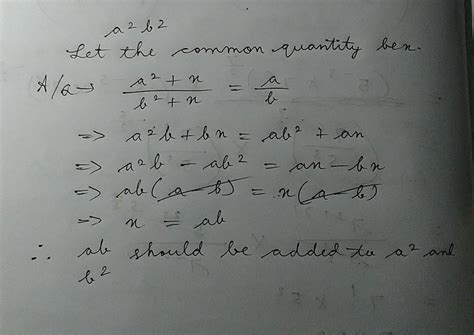 a² b²
Let the common quantity be x.
A/a → a² + x / b² + x = a / b
=> a²b + bx = ab² + ax
=> a²b - ab² = ax - bx
=> ab(a - b) = x(a - b)
=> x = ab
∴ ab should be added to a² and
b²